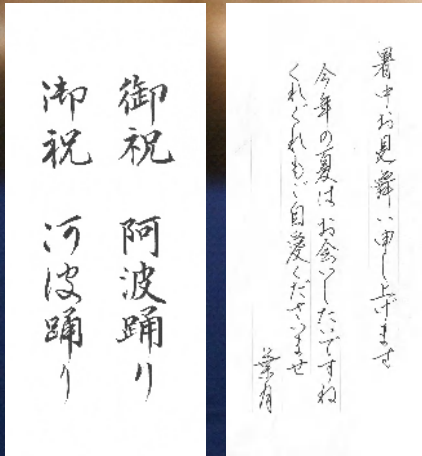 御祝 阿波踊り
御祝 阿波踊り
暑中お見舞い申し上げます
今年の夏は お会いしたいですね
くれぐれもご自愛くださいませ
葉月